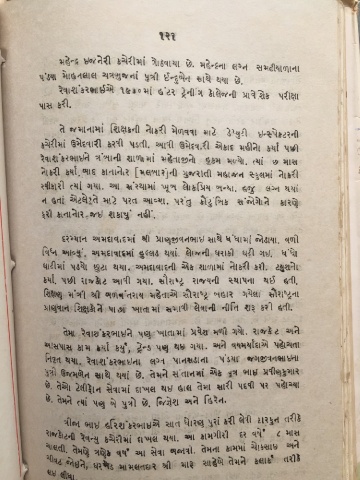 ૧૨૧
મહેન્દ્ર ઇજનેરી કચેરીમાં ગોઠવાયા છે. મહેન્દ્રના લગ્ન સમઢીયાળાના
પંડ્યા મોહનલાલ ચત્રભુજનાં પુત્રી ઇન્દુબેન સાથે થયા છે.
રેવાશંકરભાઈએ ૧૯૩૦માં હંટર ટ્રેનીંગ કોલેજની પ્રાવેશિક પરીક્ષા
પાસ કરી.
તે જમાનામાં શિક્ષકની નોકરી મેળવવા માટે ડેપ્યુટી ઇન્સ્પેકટરની
કચેરીમાં ઉમેદવારી કરવી પડતી. આવી ઉમેદવારી એકાદ મહીનો કર્યા પછી
રેવાશંકરભાઈને શાળામાં મહેતાજીનો હુકમ મળ્યો. ત્યાં ૭ માસ
નોકરી કર્યા બાદ કાનાનોર [મલબાર]ની ગુજરાતી મહાજન સ્કૂલમાં નોકરી
સ્વીકારી ત્યાં ગયા. આ સંસ્થામાં ખૂબ લોકપ્રિય બન્યા. હજુ લગ્ન થયાં
ન હતાં એટલે તે માટે પરત આવ્યા, પરંતુ કૌટુંબિક સંજોગોને કારણે
ફરી કાનાનોર જઈ શકાયું નહીં.
દરમ્યાન અમદાવાદમાં શ્રી પ્રાણજીવનભાઇ સાથે ધંધામાં જોડાયા. વળી
વિઘ્ન આવ્યું. અમદાવાદમાં હુલ્લડ થયાં લોન્જની ઘરાકી ઘટી ગઈ. ધંધો
ધારીમાં પડવો છુટા થયા. અમદાવાદની એક શાળામાં નોકરી કરી. ટયુશનો
કર્યાં. પછી રાજકોટ આવી ગયા. સૌરાષ્ટ્ર રાજ્યની સ્થાપના થઈ હતી.
શિક્ષણ મંત્રી શ્રી જાદવજી મહેતાએ સૌરાષ્ટ્ર બહાર ગયેલા સૌરાષ્ટ્રના
શિક્ષકોને પાછા ખાતામાં સમાવી લેવાની નીતિ શરૂ કરી હતી.
તેમાં રેવાશંકરભાઇને પણ ખાતામાં પ્રવેશ મળી ગયો. રાજકોટ અને
આસપાસ કામ કાર્ય કર્યું. ટ્રેન્ડ પણ થઇ ગયા. અને વયમર્યાદાએ પહોંચતા
નિવૃત્ત થયા. રેવાશંકરભાઇના લગ્ન પાનસડાના પંડયા જગજીવનભાઇના
પુત્રી ઉજમબેન સાથે થયાં છે. તેમને સંતાનમાં એક પુત્ર ભાઇ પ્રવીણકુમાર
છે. તેઓ ટેલીફોન સેવામાં દાખલ થઇ હાલ તેમાં સારી પદવી પર પહોંચ્યા
છે. તેમને ત્યાં પણ બે પુત્રો છે. જિજ્ઞેશ અને હિરેન.
ત્રીજા ભાઇ હરિશંકરભાઇએ સાત ધોરણ પુરાં કરી લેવી કારકુન તરીકે
રાજકોટની રેવન્યુ કચેરીમાં દાખલ થયા. આ કામગીરી દર વર્ષે ૮ માસ
ચાલતી. તેમણે ત્રણેક વર્ષ આ સેવા બજાવી. તેમના કામમાં ચોકસાઈ અને
મામલતદાર શ્રી મારૂ સાહેબે તેમને કલાર્ક તરીકે
લઇ લીધા.